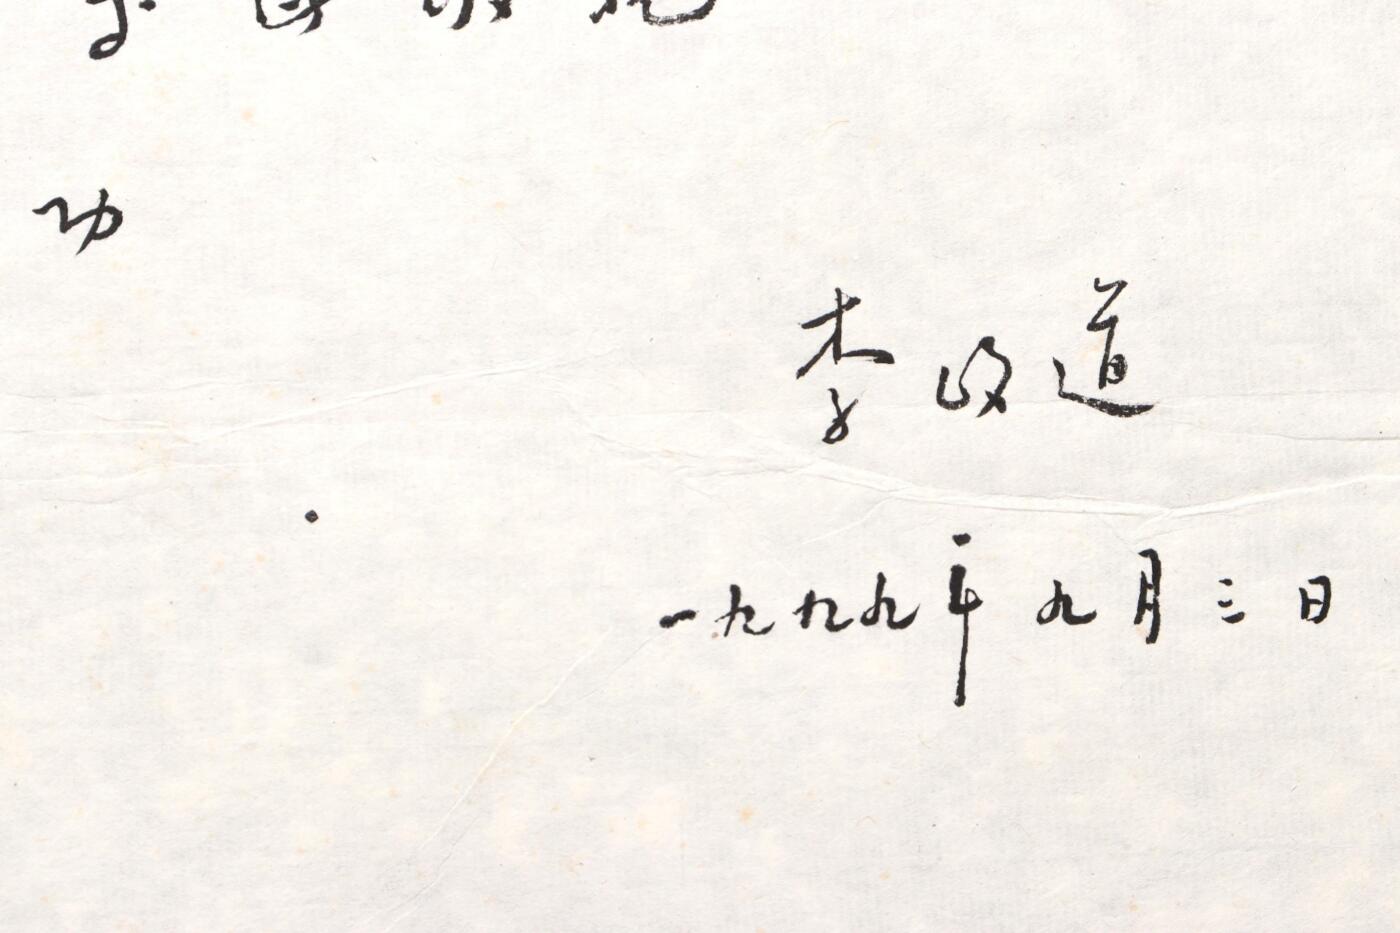 功
李政道
一九九九年九月三日